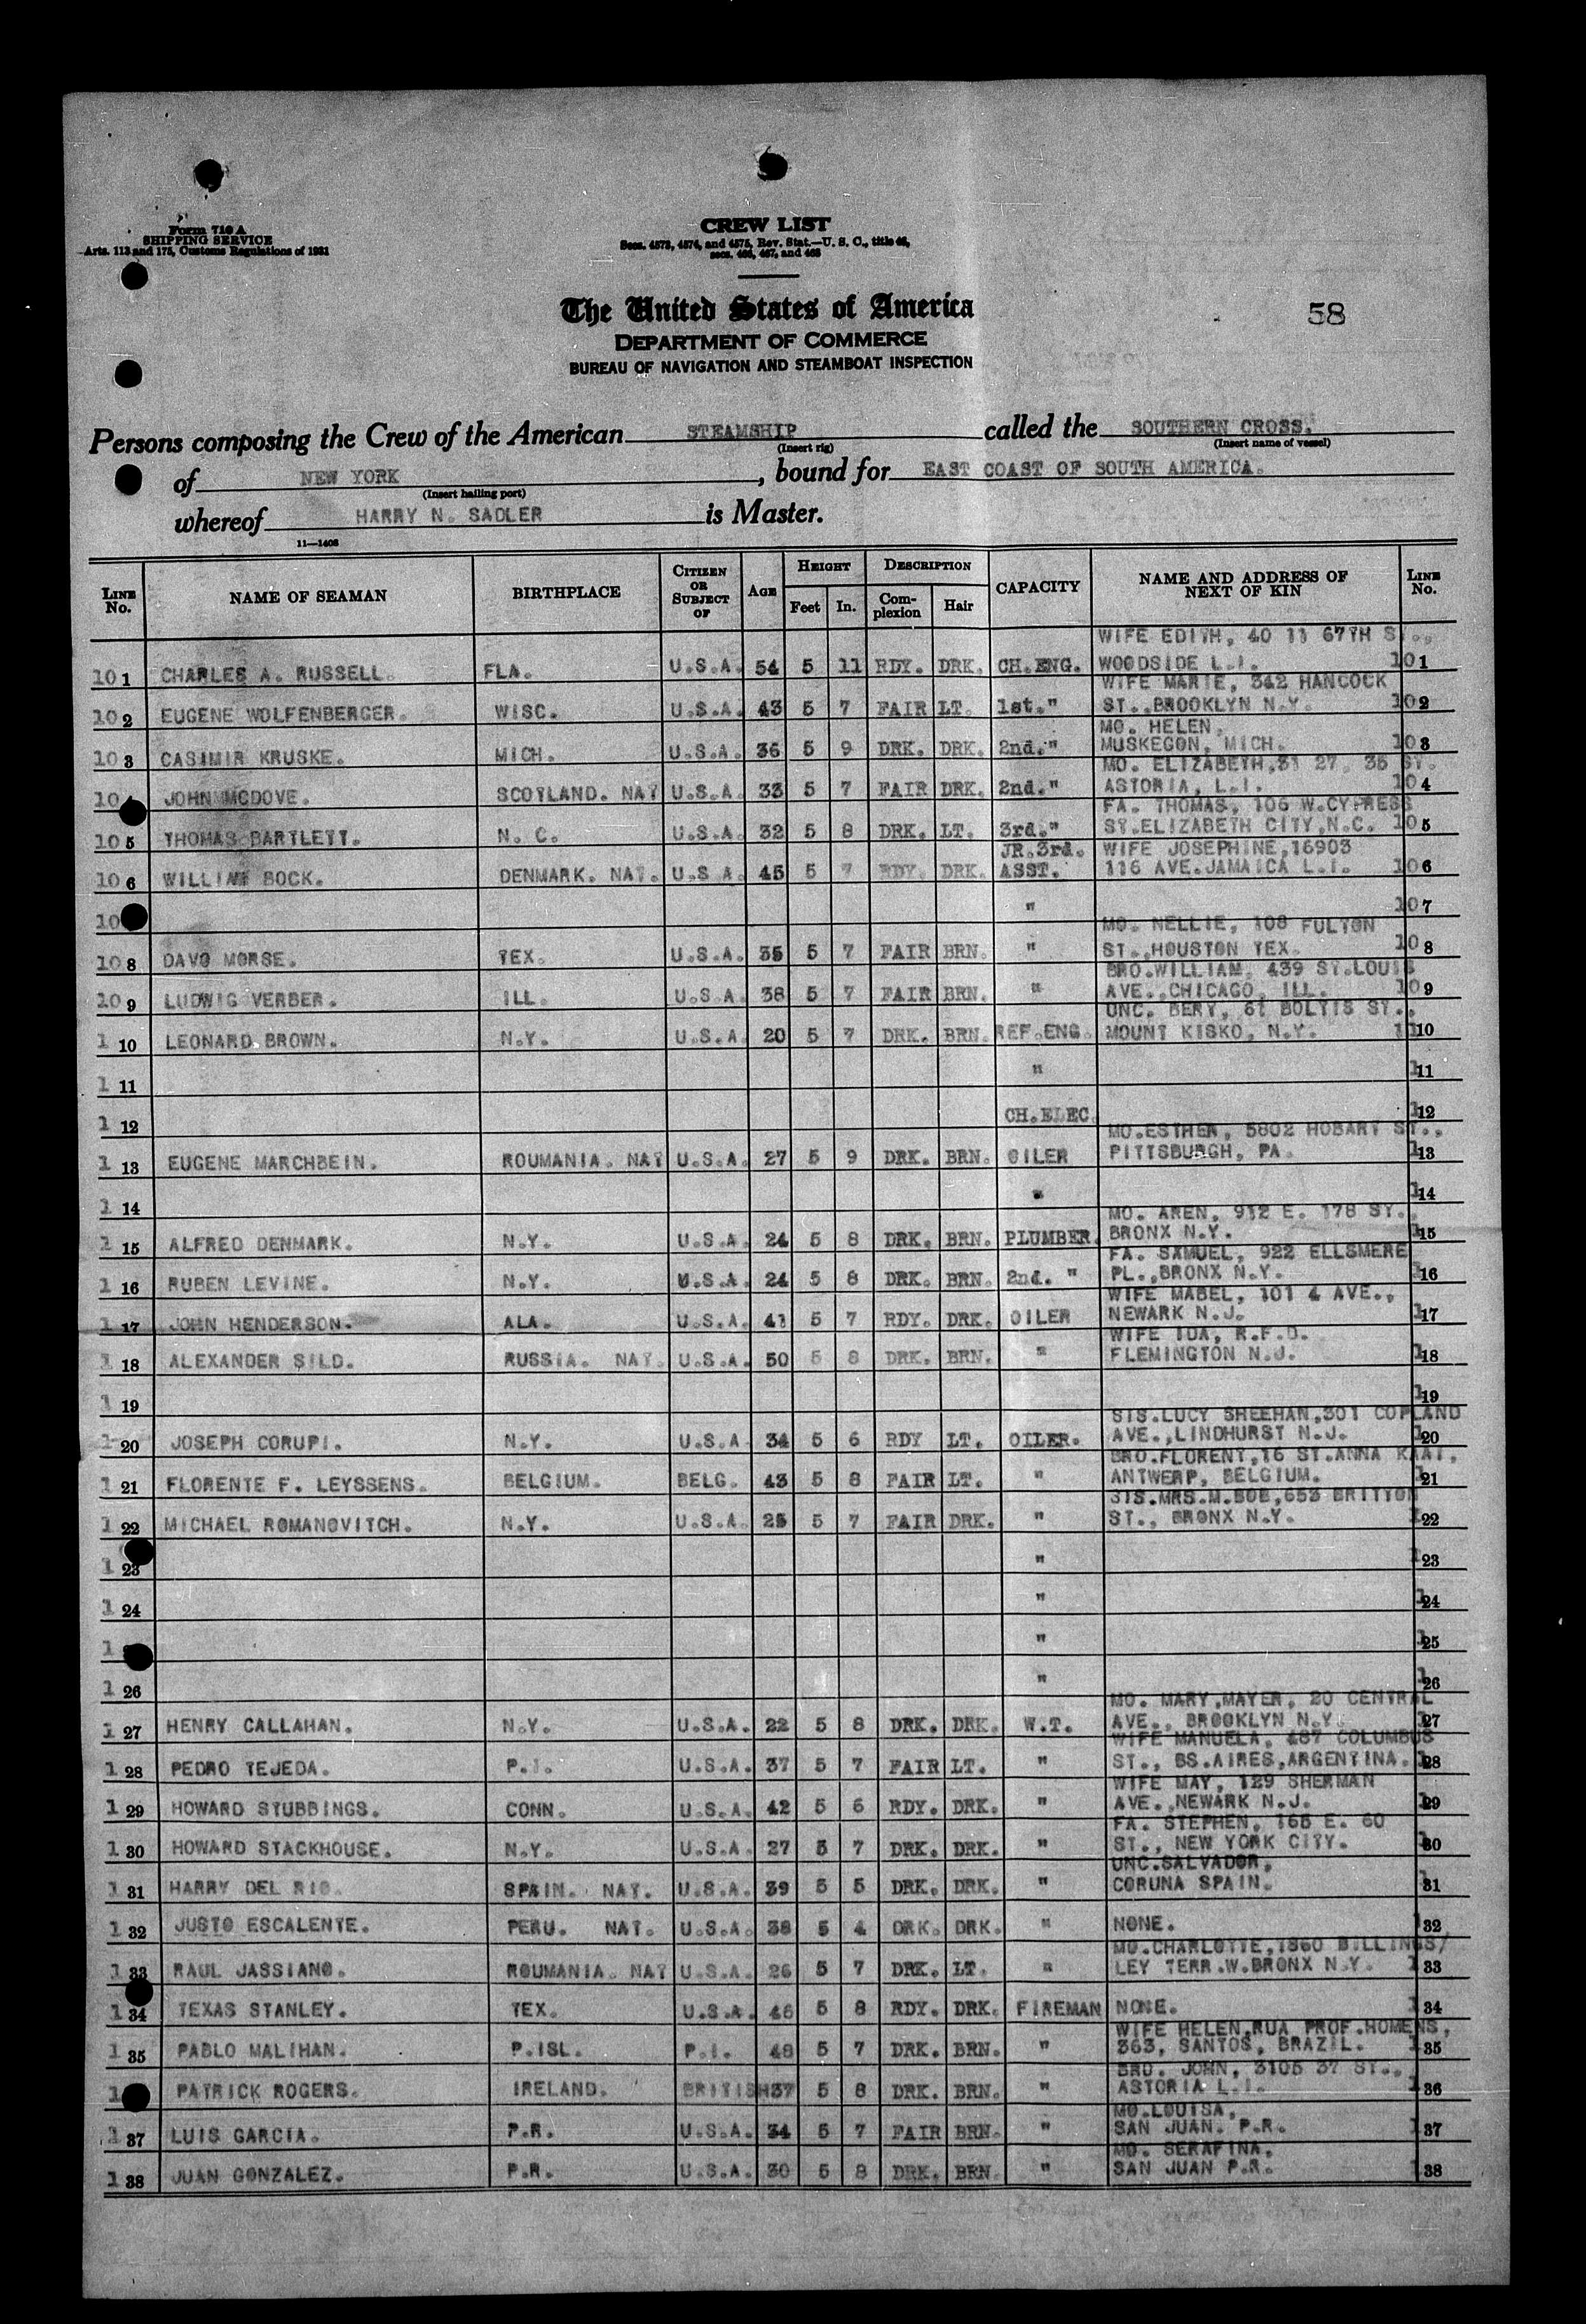 Form 710 A
SHIPPING SERVICE
Arts. 113 and 175, Customs Regulations of 1931
CREW LIST
Secs. 4573, 4574, and 4575, Rev. Stat.—U. S. C., title 46,
secs. 466, 467, and 468
The United States of America
58
DEPARTMENT OF COMMERCE
BUREAU OF NAVIGATION AND STEAMBOAT INSPECTION
Persons composing the Crew of the American STEAMSHIP called the SOUTHERN CROSS.
(Insert rig) (Insert name of vessel)
of NEW YORK, bound for EAST COAST OF SOUTH AMERICA.
(Insert hailing port)
whereof HARRY N. SADLER is Master.
11—1406
LINE No. NAME OF SEAMAN BIRTHPLACE CITIZEN OR SUBJECT OF AGE HEIGHT Feet In. DESCRIPTION Complexion Hair CAPACITY NAME AND ADDRESS OF NEXT OF KIN LINE No.
WIFE EDITH, 40 11 67TH ST.,
101 CHARLES A. RUSSELL. FLA. U.S.A. 54 5 11 RDY. DRK. CH.ENG. WOODSIDE L.I. 101
WIFE MARIE, 342 HANCOCK
102 EUGENE WOLFENBERGER. WISC. U.S.A. 43 5 7 FAIR LT. 1st." ST.,BROOKLYN N.Y. 102
MO. HELEN,
103 CASIMIR KRUSKE. MICH. U.S.A. 36 5 9 DRK. DRK. 2nd." MUSKEGON, MICH. 103
MO. ELIZABETH,31 27, 35 ST.
10 JOHN MCDOVE. SCOTLAND. NAT U.S.A. 33 5 7 FAIR DRK. 2nd." ASTORIA, L.I. 104
FA. THOMAS, 106 W.CYPRESS
105 THOMAS BARTLETT. N. C. U.S.A. 32 5 8 DRK. LT. 3rd." ST.ELIZABETH CITY,N.C. 105
JR.3rd. WIFE JOSEPHINE,16903
106 WILLIAM BOCK. DENMARK. NAT. U.S.A. 45 5 7 RDY. DRK. ASST. 116 AVE.JAMAICA L.I. 106
10 " 107
MO. NELLIE, 108 FULTON
108 DAVO MORSE. TEX. U.S.A. 35 5 7 FAIR BRN. " ST.,HOUSTON TEX. 108
BRO.WILLIAM, 439 ST.LOUIS
109 LUDWIG VERBER. ILL. U.S.A. 38 5 7 FAIR BRN. " AVE.,CHICAGO, ILL. 109
UNC. BERT, 61 BOLTIS ST.,
110 LEONARD BROWN. N.Y. U.S.A. 20 5 7 DRK. BRN. REF.ENG. MOUNT KISKO, N.Y. 110
111 " 111
112 CH.ELEC. 112
MO.ESTHER, 5802 HOBART ST.,
113 EUGENE MARCHBEIN. ROUMANIA. NAT U.S.A. 27 5 9 DRK. BRN. OILER PITTSBURGH, PA. 113
114 " 114
MO. AREN, 912 E. 178 ST.
115 ALFRED DENMARK. N.Y. U.S.A. 24 5 8 DRK. BRN. PLUMBER. BRONX N.Y. 115
FA. SAMUEL, 922 ELLSMERE
116 RUBEN LEVINE. N.Y. U.S.A. 24 5 8 DRK. BRN. 2nd. " PL.,BRONX N.Y. 116
WIFE MABEL, 101 4 AVE.,
117 JOHN HENDERSON. ALA. U.S.A. 41 5 7 RDY. DRK. OILER NEWARK N.J. 117
WIFE IDA, R.F.D.
118 ALEXANDER SILD. RUSSIA. NAT. U.S.A. 50 5 8 DRK. BRN. " FLEMINGTON N.J. 118
119 119
SIS.LUCY SHEEHAN,301 COPLAND
120 JOSEPH CORUPI. N.Y. U.S.A 34 5 6 RDY LT. OILER. AVE.,LINDHURST N.J. 120
BRO.FLORENT,16 ST.ANNA KAAI,
121 FLORENTE F. LEYSSENS. BELGIUM. BELG. 43 5 8 FAIR LT. " ANTWERP, BELGIUM. 121
SIS.MRS.M.BOB,653 BRITTON
122 MICHAEL ROMANOVITCH. N.Y. U.S.A. 25 5 7 FAIR DRK. " ST., BRONX N.Y. 122
123 " 123
124 " 124
1 " 125
126 " 126
MO. MARY,MAYER, 20 CENTRAL
127 HENRY CALLAHAN. N.Y. U.S.A. 22 5 8 DRK. DRK. W.T. AVE., BROOKLYN N.Y. 127
WIFE MANUELA, 487 COLUMBUS
128 PEDRO TEJEDA. P.I. U.S.A. 37 5 7 FAIR LT. " ST., BS.AIRES,ARGENTINA. 128
WIFE MAY, 129 SHERMAN
129 HOWARD STUBBINGS. CONN. U.S.A. 42 5 6 RDY. DRK. " AVE.,NEWARK N.J. 129
FA. STEPHEN, 165 E. 60
130 HOWARD STACKHOUSE. N.Y. U.S.A. 27 5 7 DRK. DRK. " ST., NEW YORK CITY. 130
UNC.SALVADOR,
131 HARRY DEL RIO. SPAIN. NAT. U.S.A. 39 5 5 DRK. DRK. " CORUNA SPAIN. 131
132 JUSTO ESCALENTE. PERU. NAT. U.S.A. 38 5 4 DRK. DRK. " NONE. 132
MO.CHARLOTTE,1860 BILLINGS/
133 RAUL JASSIANO. ROUMANIA. NAT U.S.A. 26 5 7 DRK. LT. " LEY TERR.W.BRONX N.Y. 133
134 TEXAS STANLEY. TEX. U.S.A. 46 5 8 RDY. DRK. FIREMAN NONE. 134
WIFE HELEN,RUA PROF.HOMENS,
135 PABLO MALIHAN. P.ISL. P.I. 48 5 7 DRK. BRN. " 363, SANTOS, BRAZIL. 135
BRO. JOHN, 3105 37 ST.,
1 PATRICK ROGERS. IRELAND. BRITISH 37 5 8 DRK. BRN. " ASTORIA L.I. 136
MO.LOUISA,
137 LUIS GARCIA. P.R. U.S.A. 34 5 7 FAIR BRN. " SAN JUAN. P.R. 137
MO. SERAFINA,
138 JUAN GONZALEZ. P.R. U.S.A. 30 5 8 DRK. BRN. " SAN JUAN P.R. 138